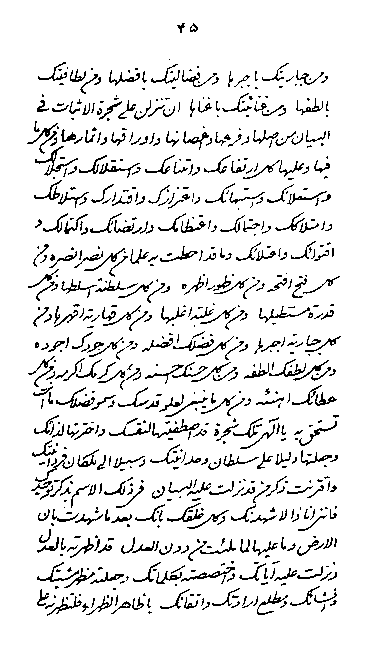 ٤٥
ومن جباريتك باجبرها ومن فضاليتك بافضلها ومن لطافيتك
بالطفها ومن غنائيتك باغناها ان تنزلن على شجرة الاثبات في
البيان من اصلها وفرعها واغصانها واوراقها واثمارها ومن كل ما
فيها وعليها كل ارتفاعك وامتناعك واستقلالك واستجلالك
واستعلائك واعتزازك واقتدارك واستلاطك
وامتلاكك واجتمالك واعتظامك وارتضائك واكتمالك و
وما قد احطت به علما من كل نصر انصره ومن
كل فتح افتحه ومن كل ظهور اظهره ومن كل سلطنة اسلطها ومن كل
قدرة مستطيلها ومن كل غلبة اغلبها ومن كل قهارية اقهرها ومن
كل جبارية اجبرها ومن كل فضلك افضله ومن كل جودك اجوده
ومن كل لطفك الطفه ومن كل حسنك احسنه ومن كل كرمك اكرمه ومن كل
عطائك اهنئه ومن كل ما ينبغي لعلو قدسك وسمو فضلك ما انت
تستحق به يا الهي تلك شجرة قد اصطفيتها لنفسك واخترتها لذاتك
وجعلتها دليلا على سلطان وحدانيتك وسبيلا الى مليكان فردانيتك
واقرنت ذكر من قد نزلت عليه البيان فر ذلك الاسم بذكر توحيدك
فانني انا ذا لاشهدنك وكل خلقك بانك بعد ما شهدت بان
الارض وما عليها لما ملئت من دون العدل قد اظهرته بالعدل
ونزلت عليه آياتك واختصصته بكلماتك وجعلته مظهر مشيتك
ومطلع ارادتك واتقانك يا ظاهر الظهراء فلتظهرنه على